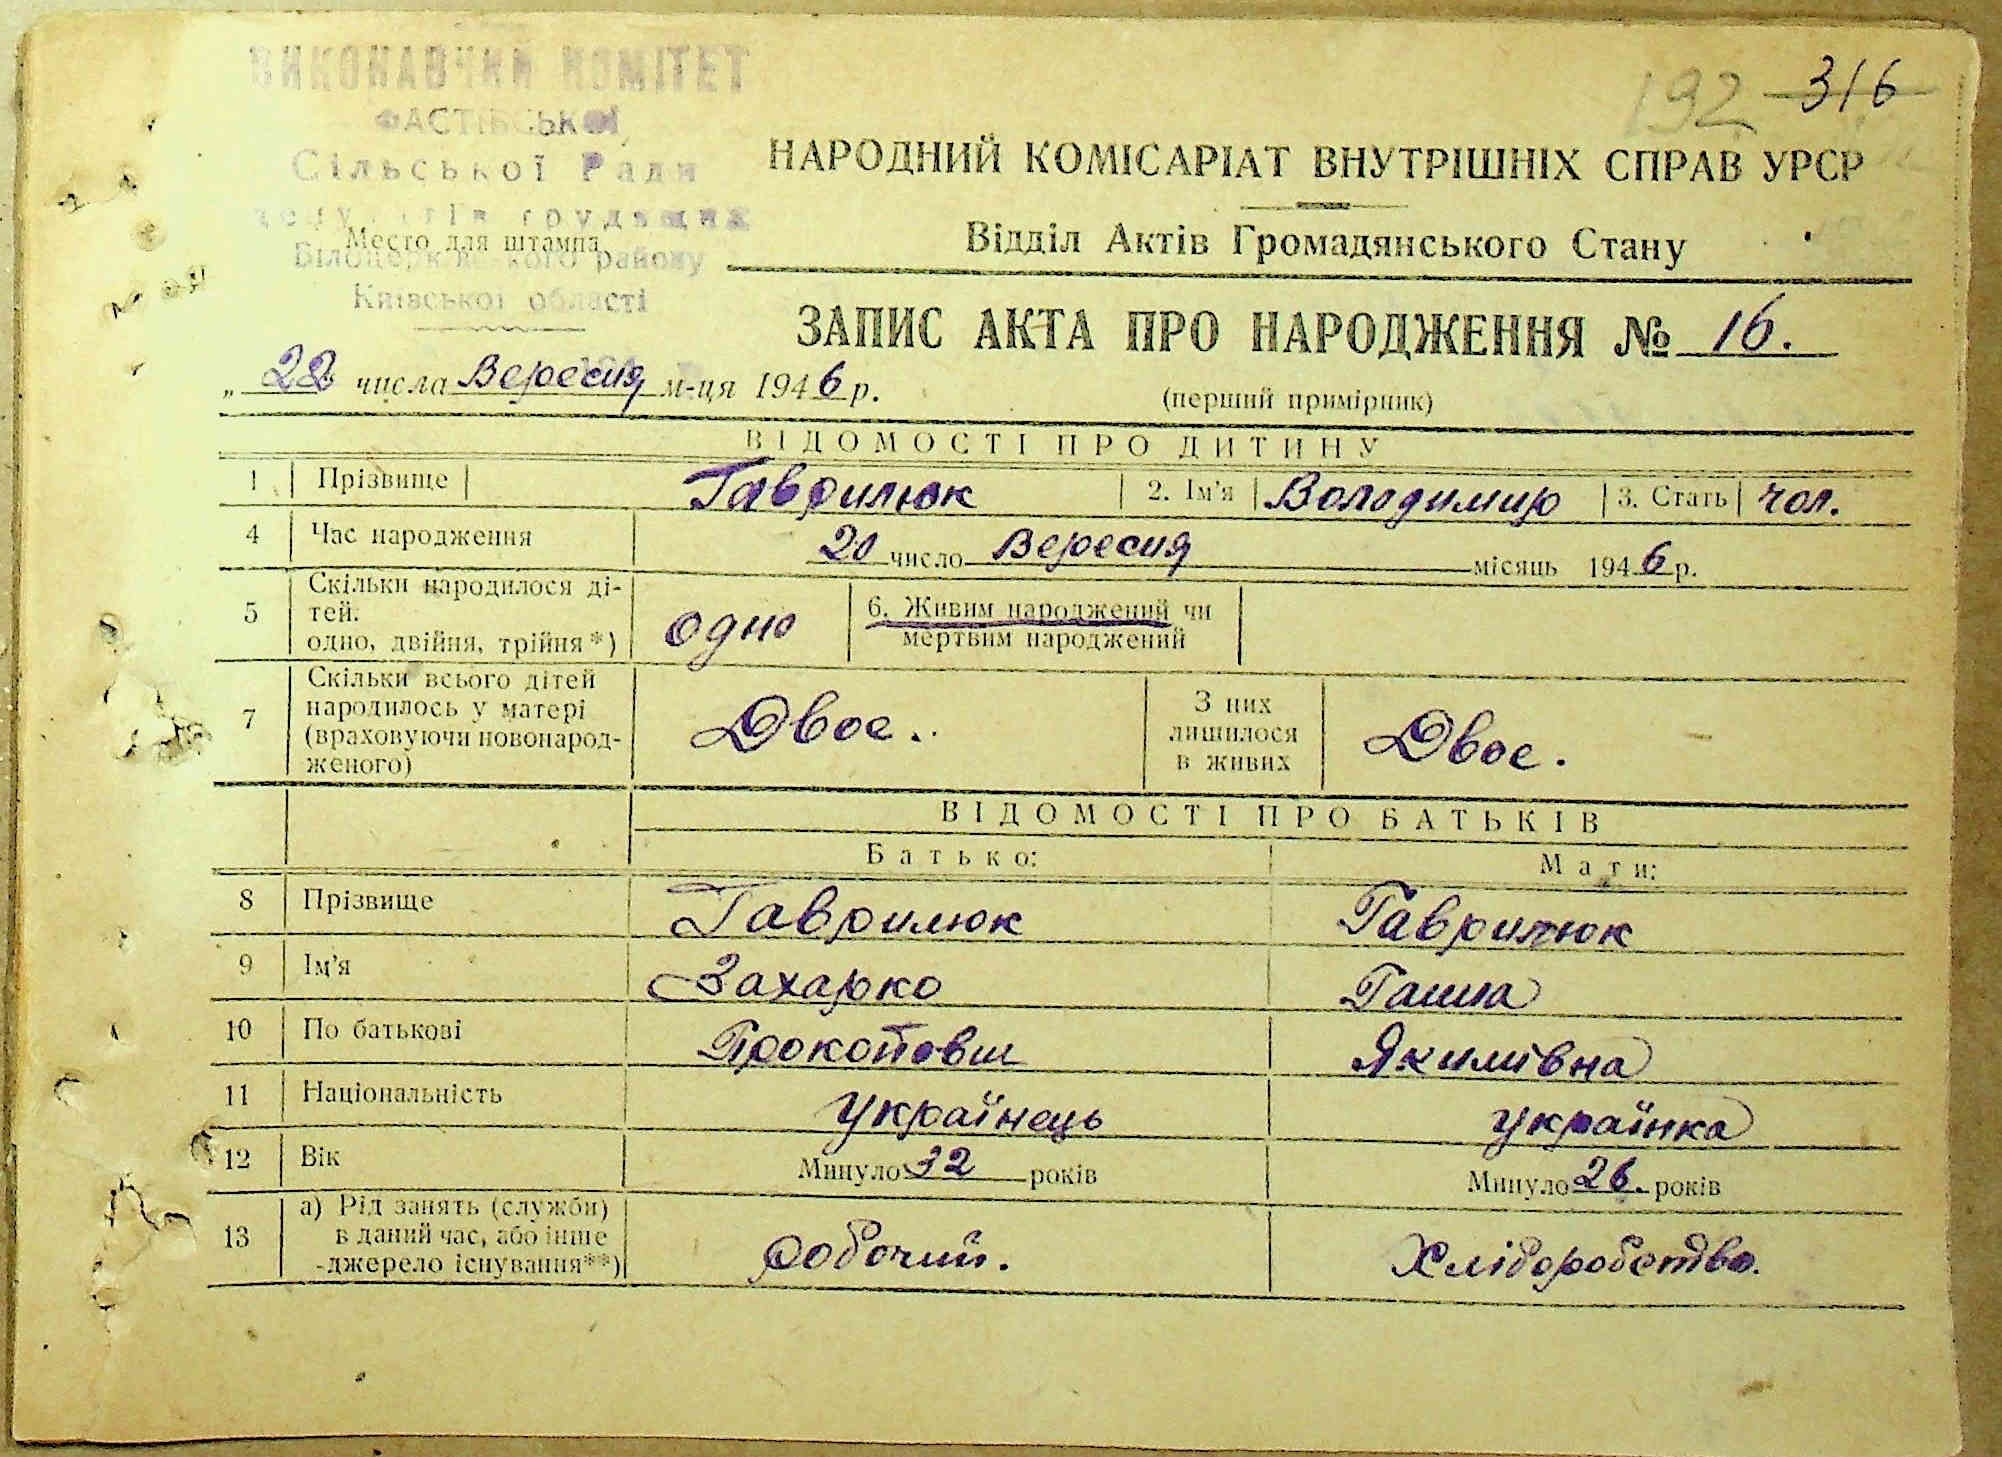 ВИКОНАВЧИЙ КОМІТЕТ
ФАСТІВСЬКОЇ
Сільської Ради
депутатів трудящих
Место для штампа
Білоцерківського району
Київської області
192 316
НАРОДНИЙ КОМІСАРІАТ ВНУТРІШНІХ СПРАВ УРСР
Відділ Актів Громадянського Стану
ЗАПИС АКТА ПРО НАРОДЖЕННЯ № 16.
„ 22 числа Вересня м-ця 1946 р.
(перший примірник)
ВІДОМОСТІ ПРО ДИТИНУ
1 Прізвище Гаврилюк 2. Ім'я Володимир 3. Стать чол.
4 Час народження 20 число Вересня місяць 1946 р.
5 Скільки народилося ді-
тей.
одно, двійня, трійня*) одно 6. Живим народжений чи
мертвим народжений
7 Скільки всього дітей
народилось у матері
(враховуючи новонарод-
женого) Двое. З них
лишилося
в живих Двое.
ВІДОМОСТІ ПРО БАТЬКІВ
Батько: Мати:
8 Прізвище Гаврилюк Гаврилюк
9 Ім'я Захарко Ганна
10 По батькові Прокопович Якимівна
11 Національність Українець українка
12 Вік Минуло 32 років Минуло 26. років
13 а) Рід занять (служби)
в даний час, або інше
-джерело існування**) робочий. Хліборобство.